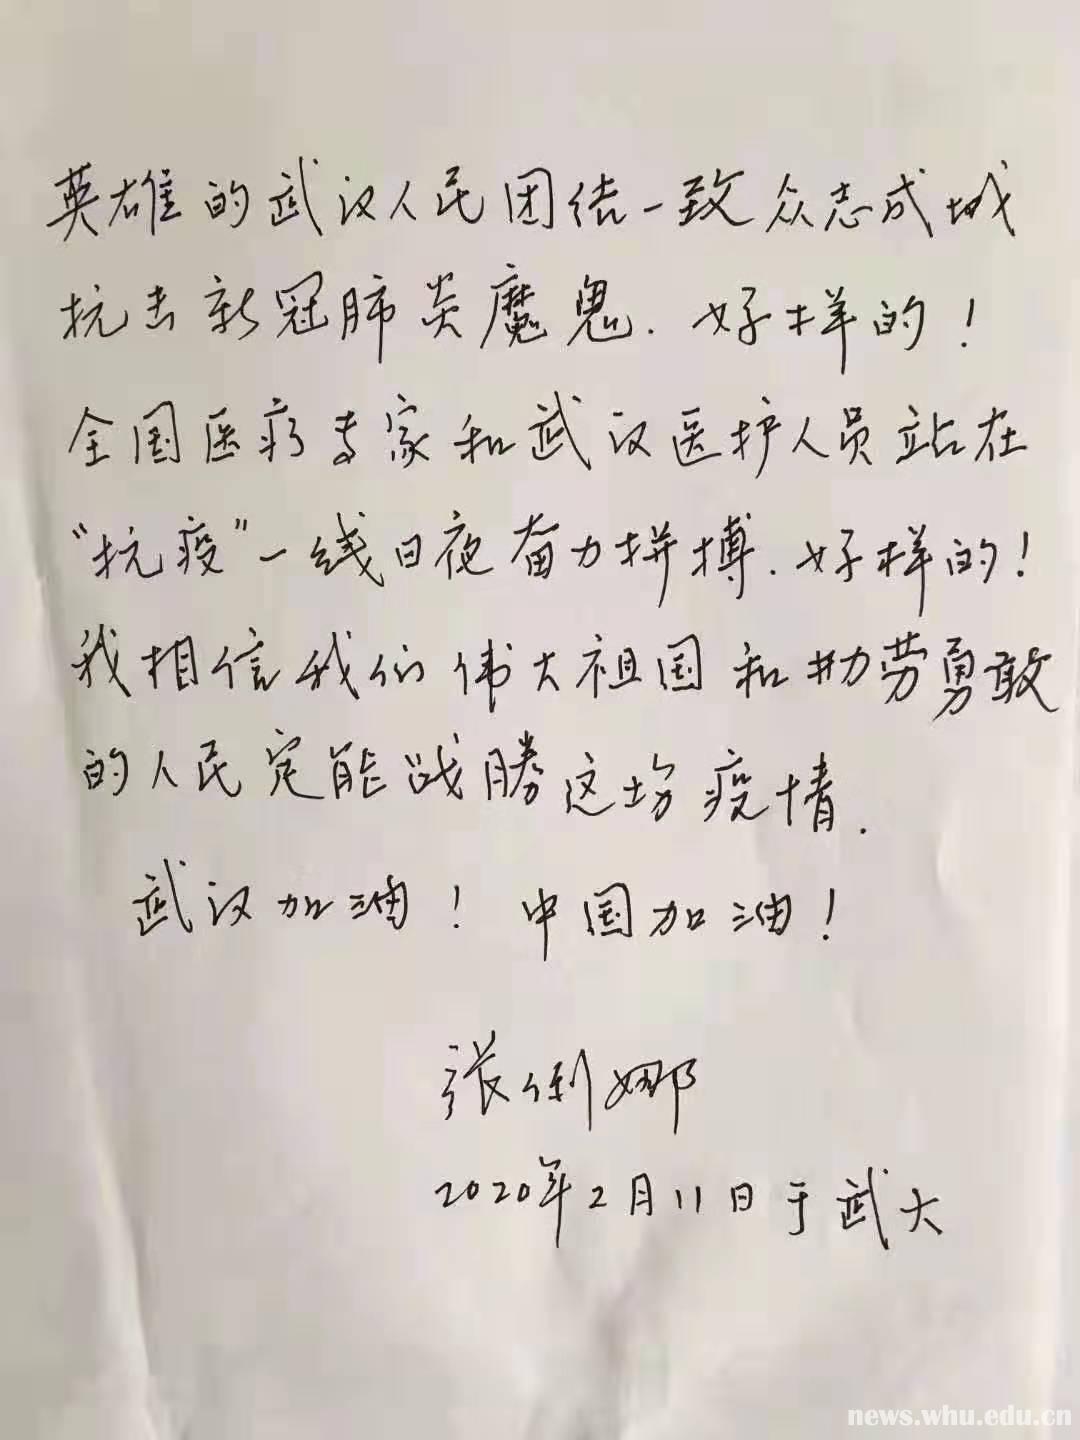 英雄的武汉人民团结一致众志成城
抗击新冠肺炎魔鬼.好样的!
全国医疗专家和武汉医护人员站在
"抗疫"一线日夜奋力拼搏.好样的!
我相信我们伟大祖国和勤劳勇敢
的人民定能战勝这场疫情.
武汉加油!中国加油!
张俐娜
2020年2月11日于武大
news.whu.edu.cn